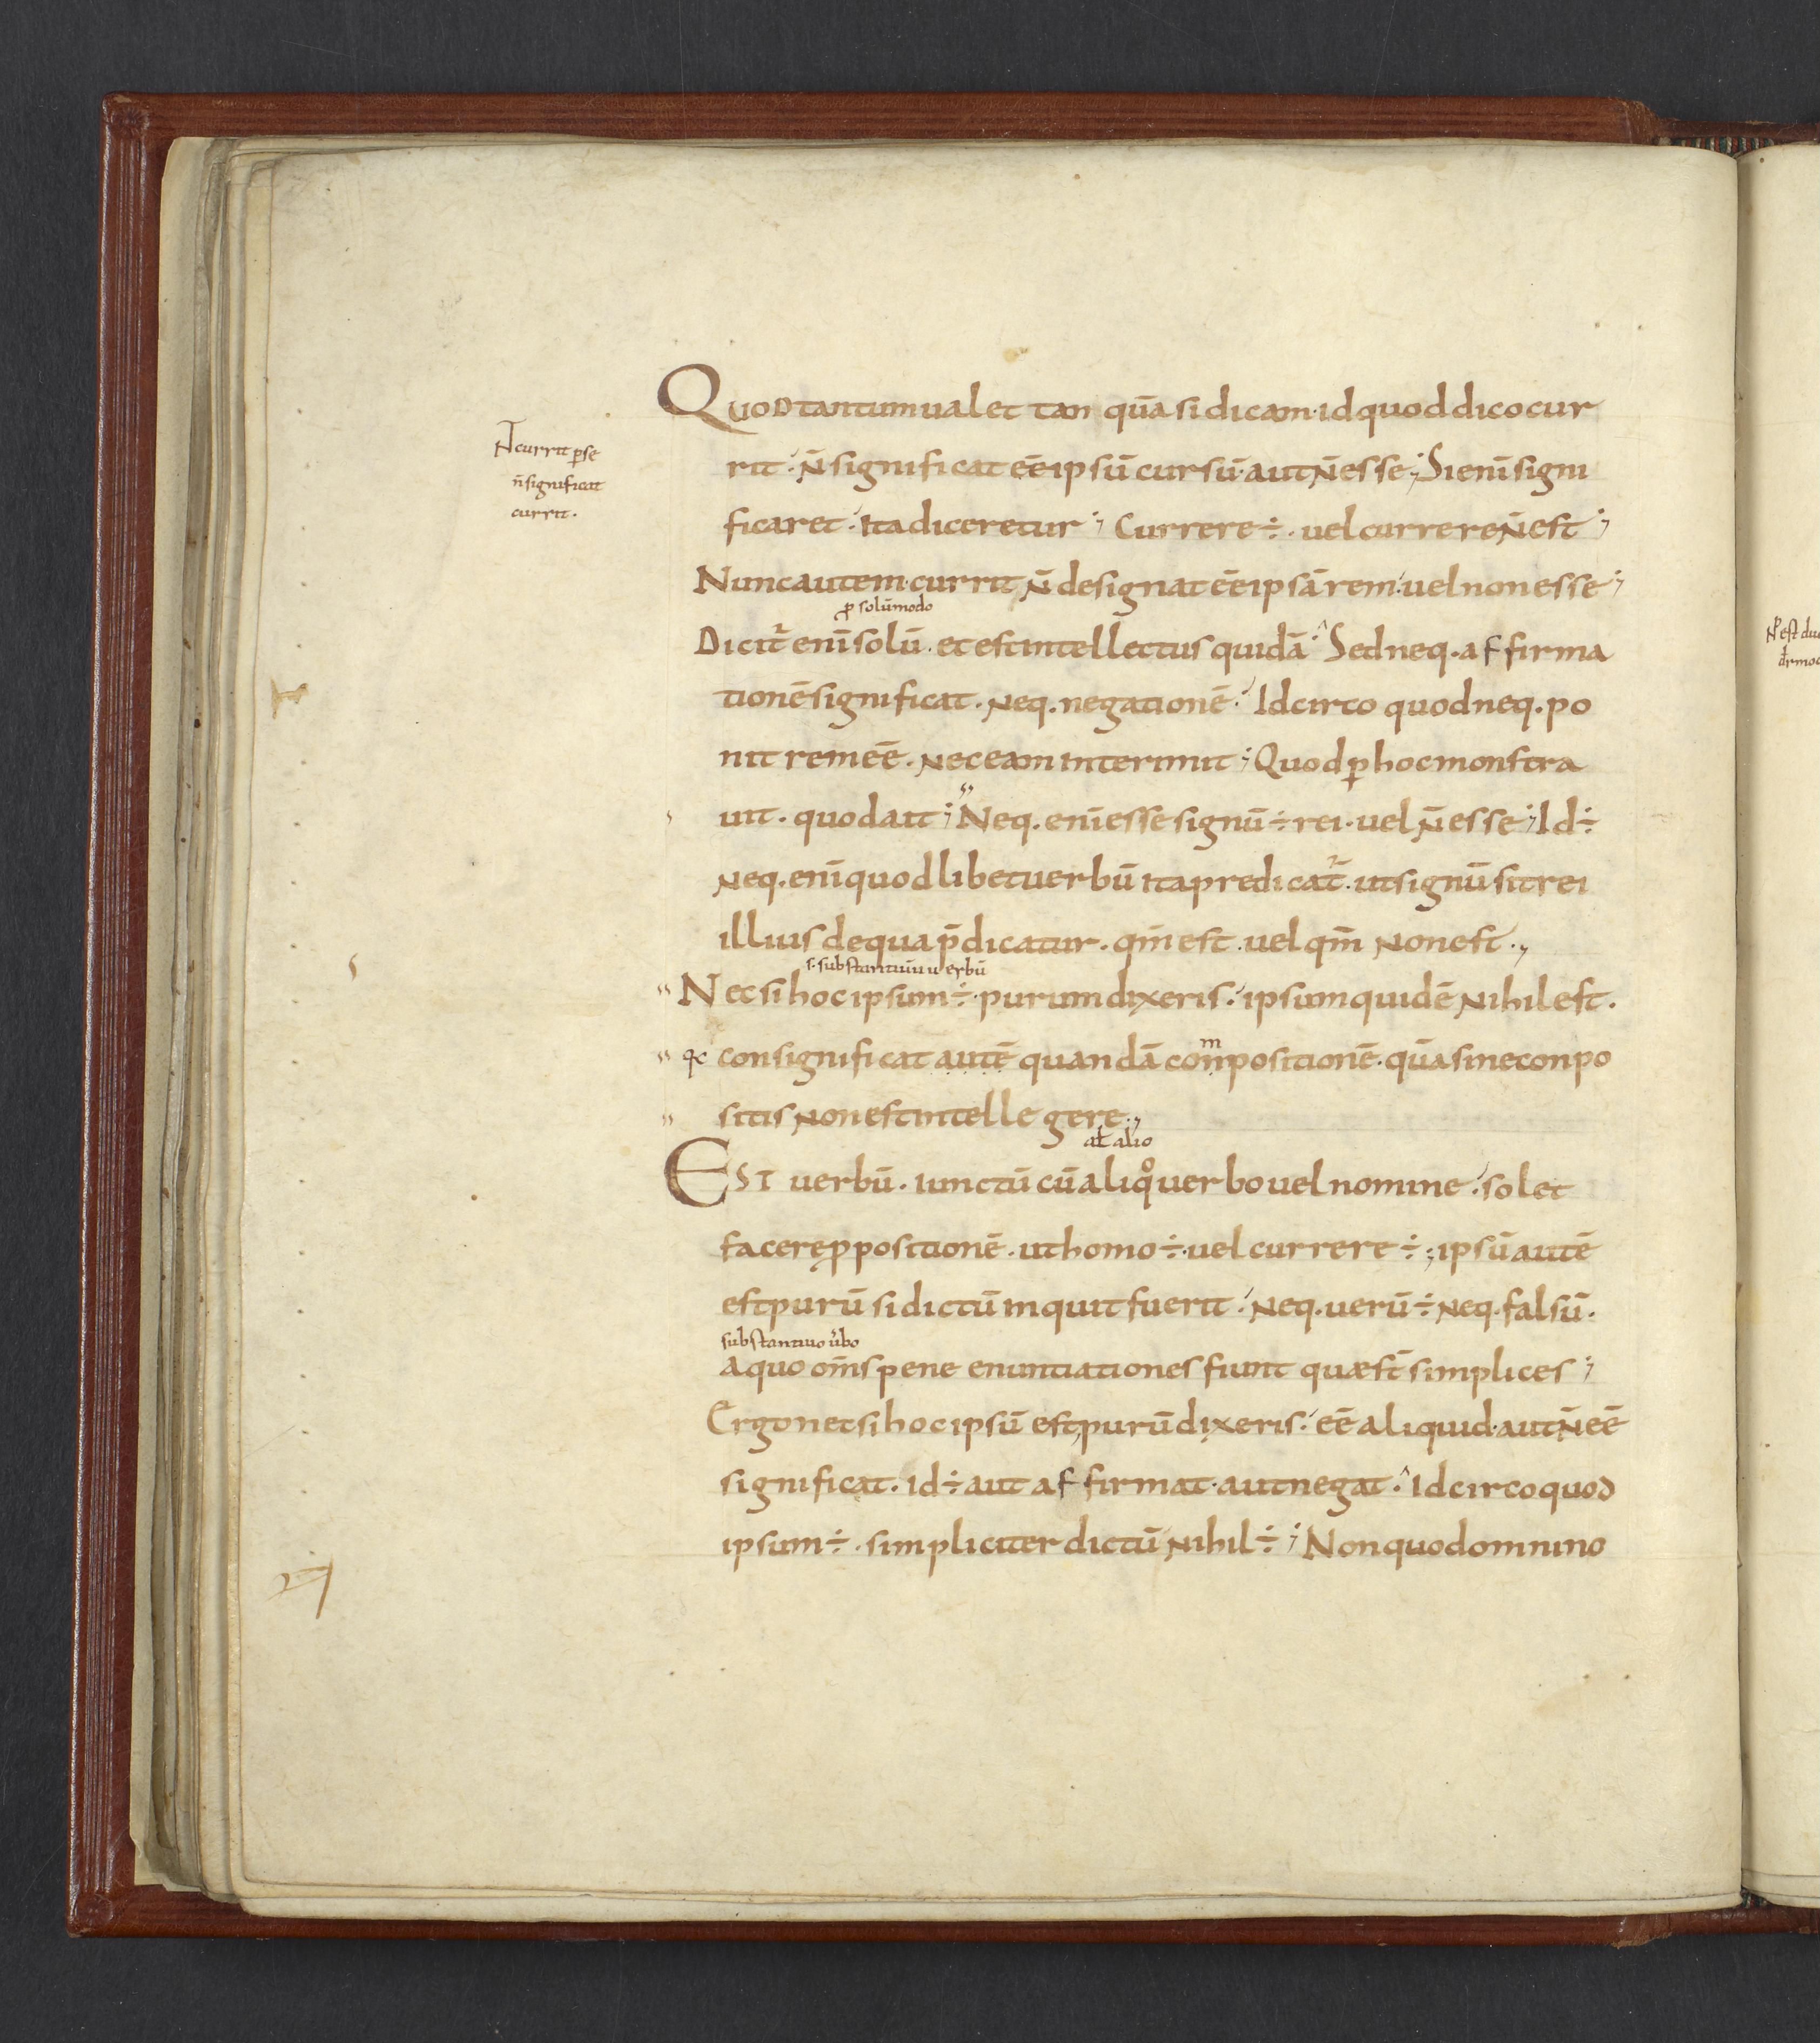 Quod tantum ualet tan quā si dicam· id quod dico cur
N̄ currit p̱ se
n̄ significat
currit.
rit· n̄ significat ēē ipsū cursū· aut n̄ esse; Si enī signi
ficaret· ita diceretur; Currere ÷· uel currere n̄ est;
Nunc autem· currit n̄ designat ēē ipsā rem· uel non esse;
p̱ solūmodo
Dicit᷑ enī solū· et est intellectus quidā· Sed neq· affirma
tionē significat· neq· negationē· Idcirco quod neq· po
nit rem ēē· nec eam interimit; Quod p̱ hoc monstra
uit· quod ait; Neq· enī esse signū ÷ rei· uel n̄ esse; Id ÷
neq· enī quodlibet uerbū ita predicat᷑· ut signū sit rei
illius de qua p̄dicatur· qm̄ est· uel qm̄ non est·,
s· substantiuū uerbū
Nec si hoc ipsum ÷· purum dixeris· ipsum quidē nihil est·
consignificat autē quandā conpositionē· quā sine conpo
m
sitis non est intellegere·,
at̄ alio
Est uerbū· iunctū cū aliq̊ uerbo uel nomine· solet
facere ꝓpositionē· ut homo ÷· uel currere ÷; ipsū autē
est purū si dictū inquit fuerit· neq· uerū ÷ neq· falsū·
substantiuo u̅bo
a quo om̄s pene enuntiationes fiunt quæ st̄ simplices;
Ergo nec si hoc ipsū est, purū dixeris· ēē aliquid· aut n̄ ēē
significat· id ÷ aut affirmat· aut negat· Idcirco quod
ipsum ÷· simpliciter dictū nihil ÷; Non quod omnino